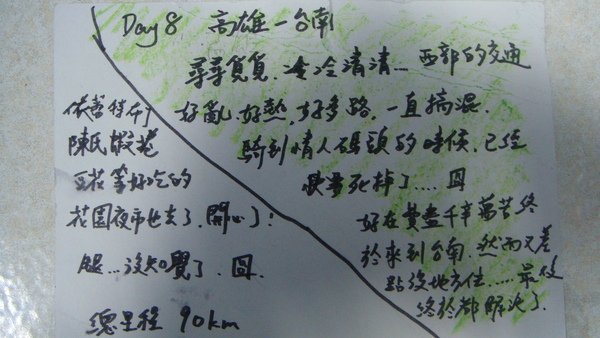 Day 8 高雄－台南
尋尋覓覓，冷冷清清... 西部的交通
好亂，好熱，好多路，一直搞混.
騎到情人碼頭的時候，已經
快要死掉了.... 囧
好在費盡千辛萬苦終
於來到台南，然而又差
點沒地方住...... 最後
終於都解決了.
陳氏蝦捲
豆花等好吃的
花園夜市也去了，開心了!
腿...沒知覺了. 囧.
總里程 90km